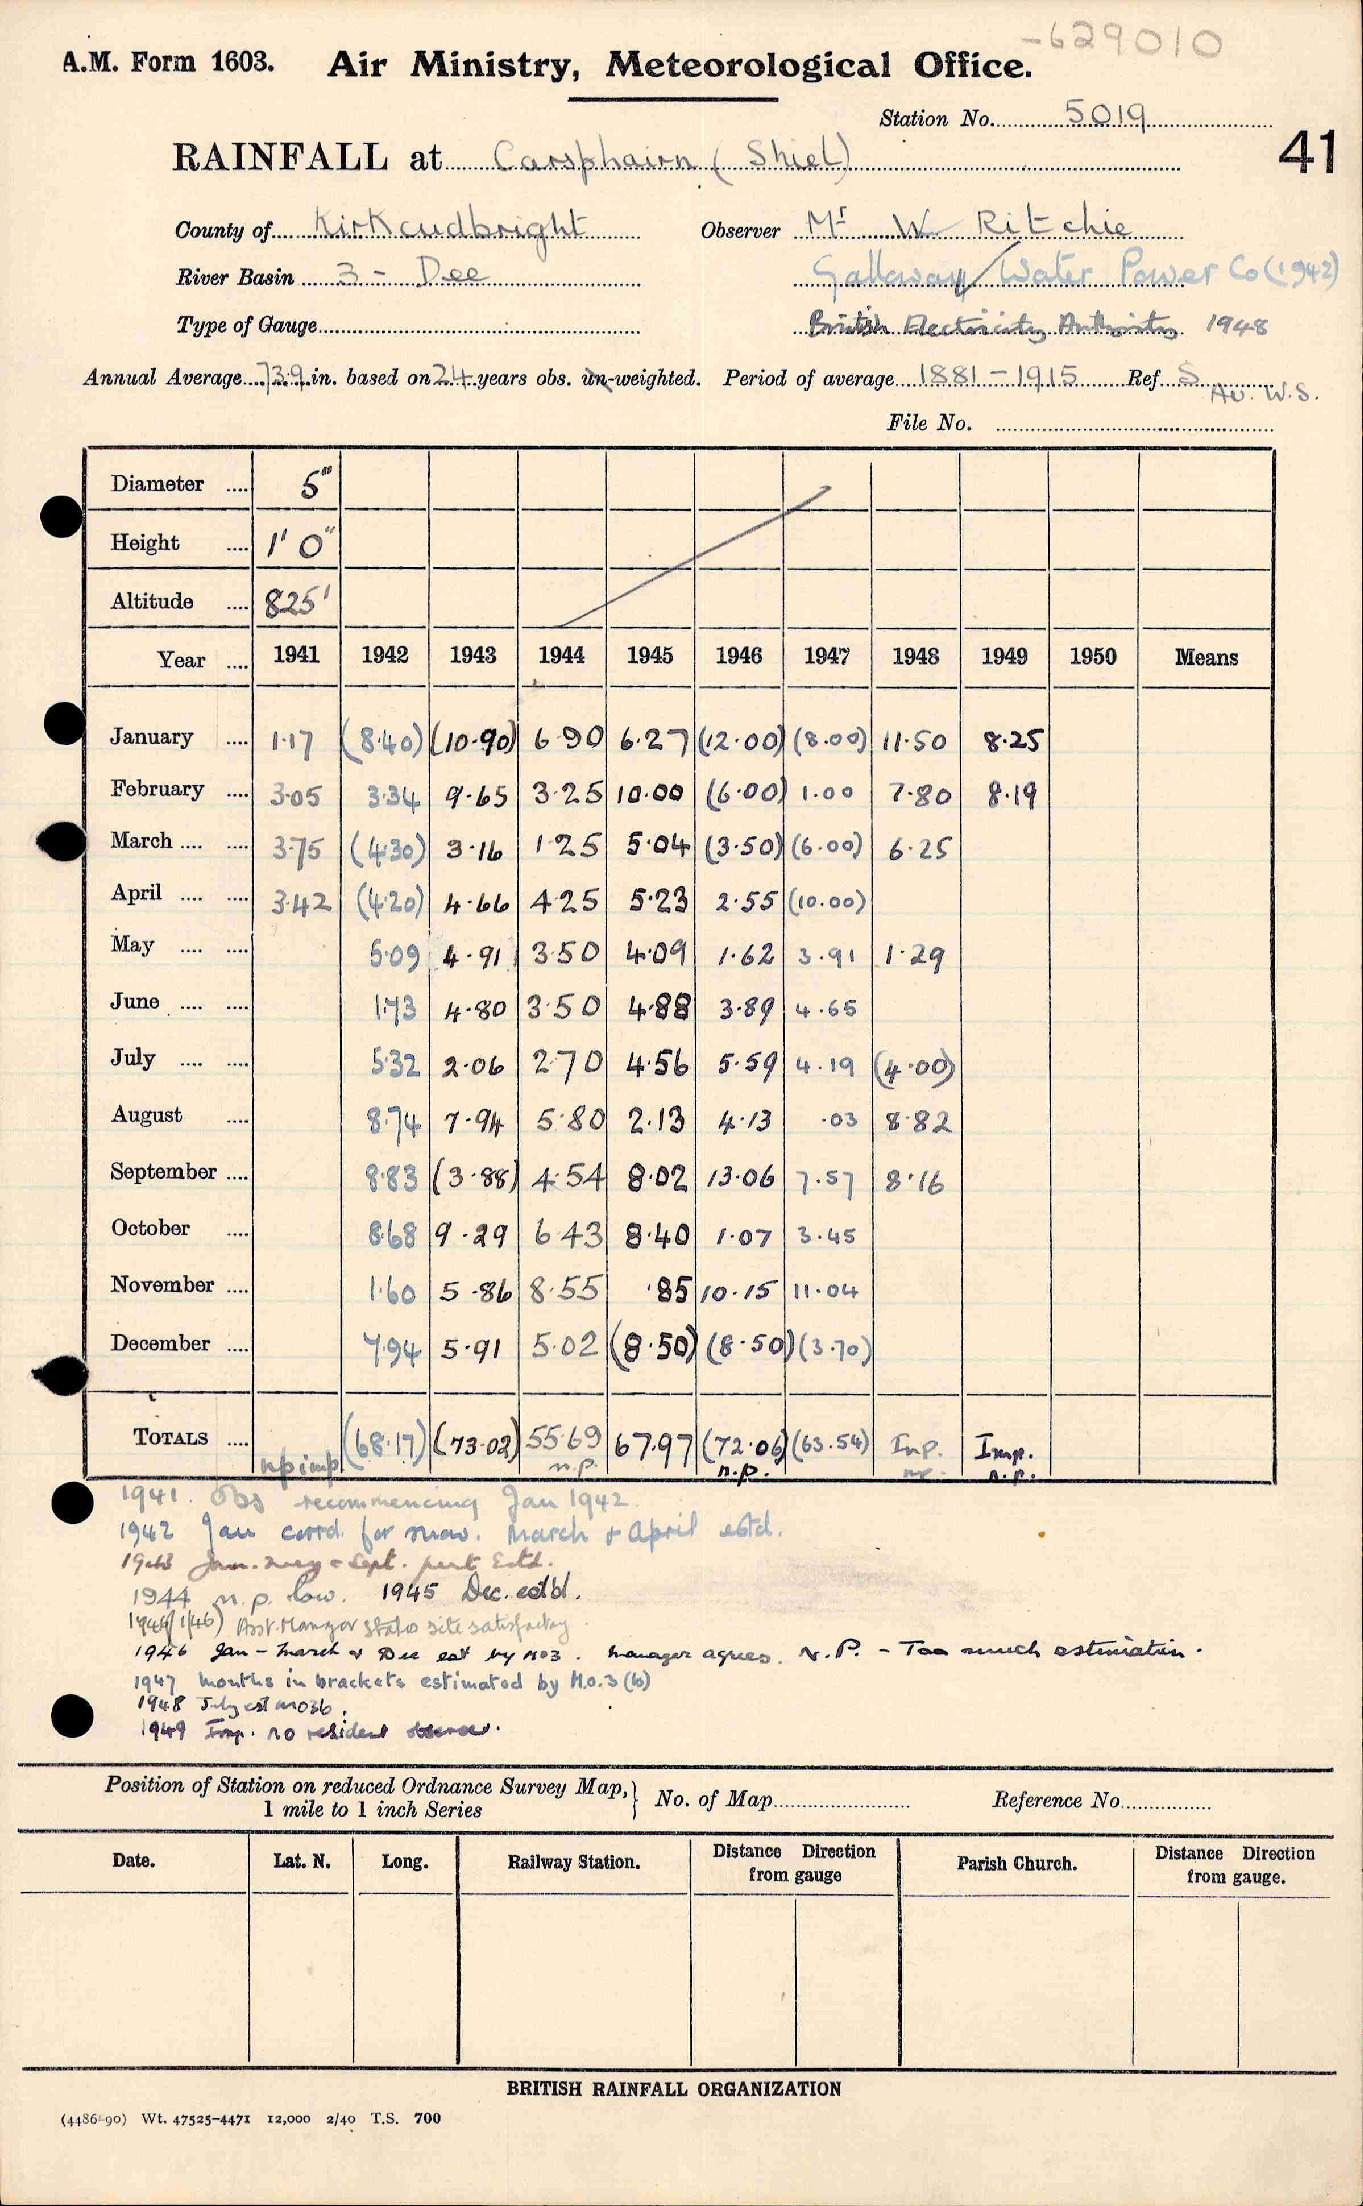 -629010
A.M. Form 1603. Air Ministry, Meteorological Office.
Station No. 5019
41
RAINFALL at Carsphairn (Shiel)
County of Kirkcudbright Observer Mr W Ritchie
River Basin 3 - Dee Galloway Water Power Co (1942)
Type of Gauge British Electricity Authority 1948
Annual Average 73.9 in. based on 24 years obs. un-weighted. Period of average 1881-1915 Ref. S
Av. W.S.
File No.
Diameter .... 5"
Height .... 1' 0"
Altitude .... 825'
Year .... 1941 1942 1943 1944 1945 1946 1947 1948 1949 1950 Means
January .... 1.17 (8.40) (10.90) 6.90 6.27 (12.00) (8.00) 11.50 8.25
February .... 3.05 3.34 9.65 3.25 10.00 (6.00) 1.00 7.80 8.19
March .... .... 3.75 (4.30) 3.16 1.25 5.04 (3.50) (6.00) 6.25
April .... .... 3.42 (4.20) 4.66 4.25 5.23 2.55 (10.00)
May .... .... 5.09 4.91 3.50 4.09 1.62 3.91 1.29
June .... .... 1.73 4.80 3.50 4.88 3.89 4.65
July .... .... 5.32 2.06 2.70 4.56 5.59 4.19 (4.00)
August .... 8.74 7.94 5.80 2.13 4.13 .03 8.82
September .... 8.83 (3.88) 4.54 8.02 13.06 7.57 8.16
October .... 8.68 9.29 6.43 8.40 1.07 3.45
November .... 1.60 5.86 8.55 .85 10.15 11.04
December .... 7.94 5.91 5.02 (8.50) (8.50) (3.70)
TOTALS .... (68.17) (73.02) 55.69 67.97 (72.06) (63.54) Inp. Imp.
np imp n.p. n.p. n.p. n.p.
1941. Obs recommencing Jan 1942
1942 Jan corrd. for snow. March + April estd.
1943 Jan. + Sept. part Estd.
1944 n.p. low. 1945 Dec. estd.
1946 (1/46) Asst. Manager states site satisfactory
1946 Jan - March & Dec est by MO3. Manager agrees. N.P. - Too much estimation.
1947 months in brackets estimated by M.O.3(b)
1948 July est MO3b.
1949 Imp. no resident observer.
Position of Station on reduced Ordnance Survey Map, } No. of Map Reference No.
1 mile to 1 inch Series
Date. Lat. N. Long. Railway Station. Distance Direction from gauge Parish Church. Distance Direction from gauge.
BRITISH RAINFALL ORGANIZATION
(4486-90) Wt. 47525-4471 12,000 2/40 T.S. 700